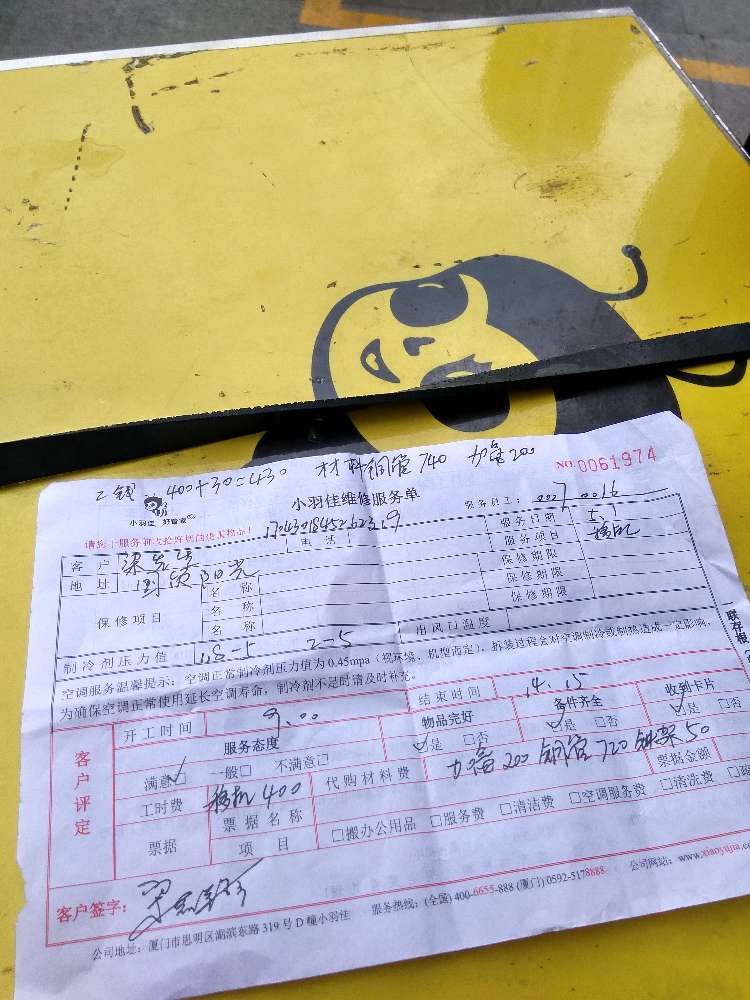 400+30=430 材料铜管740 加氟200
NO.0061974
小羽佳 好管家
小羽佳维修服务单
服务员工：0027 0016
请您于服务前支给好质的使其检查！
17043018452623.9
客户 电话 服务日期 5.1
地址 国贸阳光 服务项目 移机
保修项目 名称 保修期限
名称 保修期限
名称 保修期限
制冷剂压力值 1.8-5 2-5 出风口温度
空调服务温馨提示：空调正常制冷剂压力值为0.45mpa（视环境、机型而定），拆装过程会对空调制冷或制热造成一定影响，
为确保空调正常使用延长空调寿命，制冷剂不足时请及时补充。
联存根
客户评定
开工时间 9:00 结束时间 14.15
服务态度 物品完好 备件齐全 收到卡片
满意□ 一般□ 不满意□ □是 □否 □是 □否 □是 □否
工时费 移机400 代购材料费 加氟200 铜管720 钢架50
票据 票据名称 票据金额
项目 □搬办公用品 □服务费 □清洁费 □空调服务费 □清洗费
客户签字：
公司地址：厦门市思明区湖滨东路319号D幢小羽佳 服务热线：(全国) 400-6655-888 (厦门) 0592-5178888 公司网站：www.xiaoyujia.co